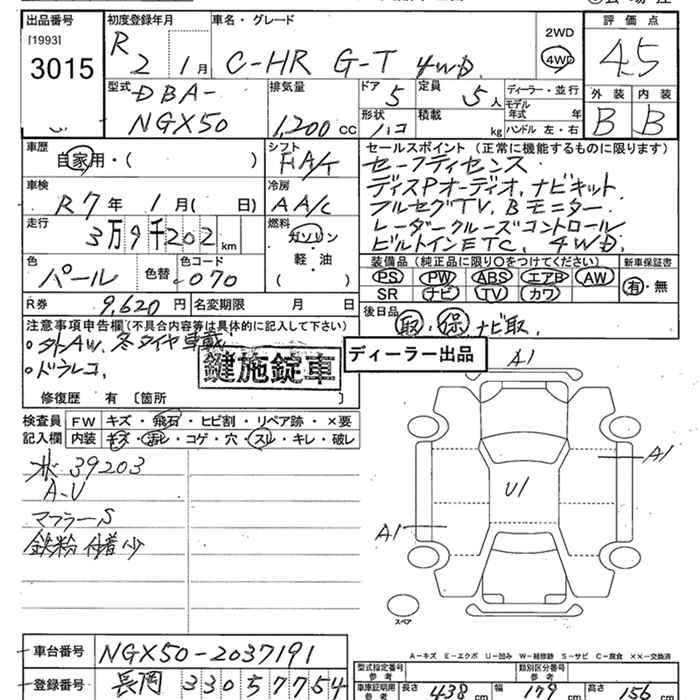 出品番号
[1993]
3015
初度登録年月
R 2 1月
車名・グレード
C-HR G-T 4WD
2WD
4WD
評価点
4.5
外装 内装
B B
型式
DBA-
NGX50
排気量
1,200 cc
ドア
5
定員
5人
ディーラー・並行
モデル年式 年
形状
ハコ
積載
kg
ハンドル 左・右
車歴
自家用・( )
シフト
FA/T
セールスポイント (正常に機能するものに限ります)
セーフティセンス
ディスPオーディオ、ナビキット
フルセグTV、Bモニター
レーダークルーズコントロール
ビルトインETC、4WD
車検
R7年 1月( 日)
冷房
AA/C
走行
3万9千202km
燃料
ガソリン
軽・油
( )
色
パール
色替
色コード
070
装備品(純正品に限り〇をつけてください)
PS PW ABS エアB AW
SR ナビ TV カワ
新車保証書
有・無
R券
9,620円
名変期限 月 日
後日品
取・保 ナビ取
注意事項申告欄(不具合内容等は具体的に記入して下さい)
・外AW、冬タイヤ車載
・ドラレコ、
鍵施錠車
ディーラー出品
修復歴 有〔箇所 〕
検査員記入欄
FW キズ・飛石・ヒビ割・リペア跡・×要
内装 キズ・汚レ・コゲ・穴・スレ・キレ・破レ
39203
A-U
マフラーS
鉄粉付着少
A1
A1
U1
A1
スペア
A-キズ E-エクボ U-凹み W-補修跡 S-サビ C-腐食 ××-交換済
車台番号
NGX50-2037191
登録番号
長岡 330 5 7754
型式指定番号
参考
類別区分番号
参考
車庫証明用
参考
長さ 438 cm 幅 179 cm 高さ 156 cm